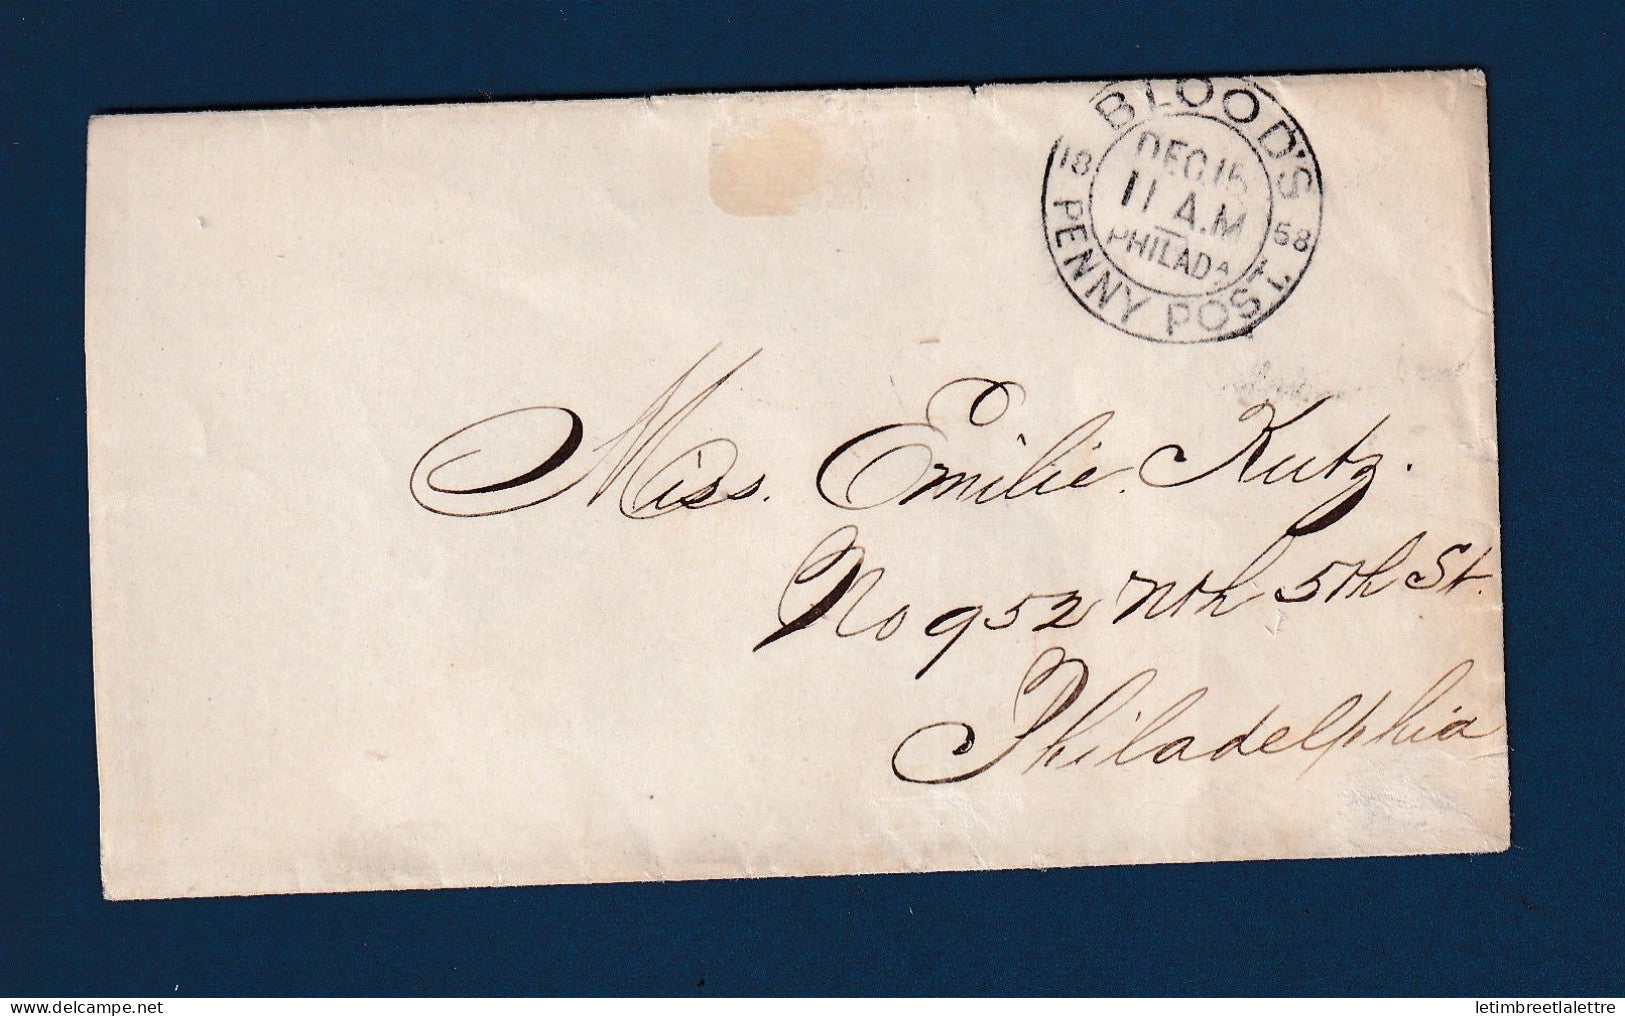 BLOOD'S
18 58
DEC. 15
11 A.M
PHILADA
PENNY POST
Miss. Emilie. Kutz.
No 952 Nth 5th St.
Philadelphia
delcampe.net
letimbreetlalettre